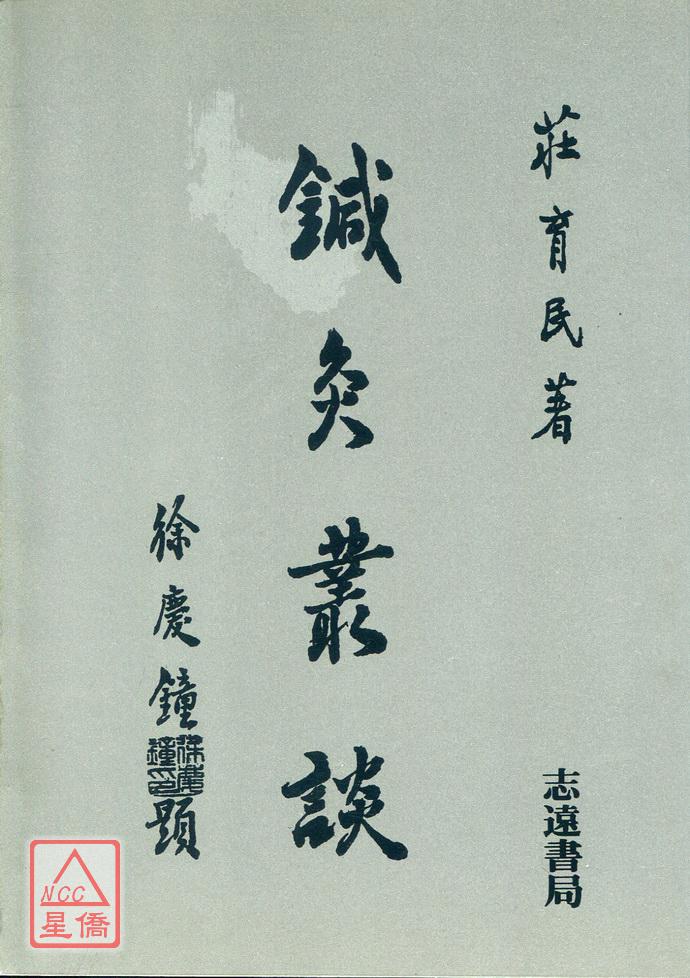 莊育民著
鍼灸叢談
徐慶鐘題
徐慶鐘印
志遠書局
NCC
星僑